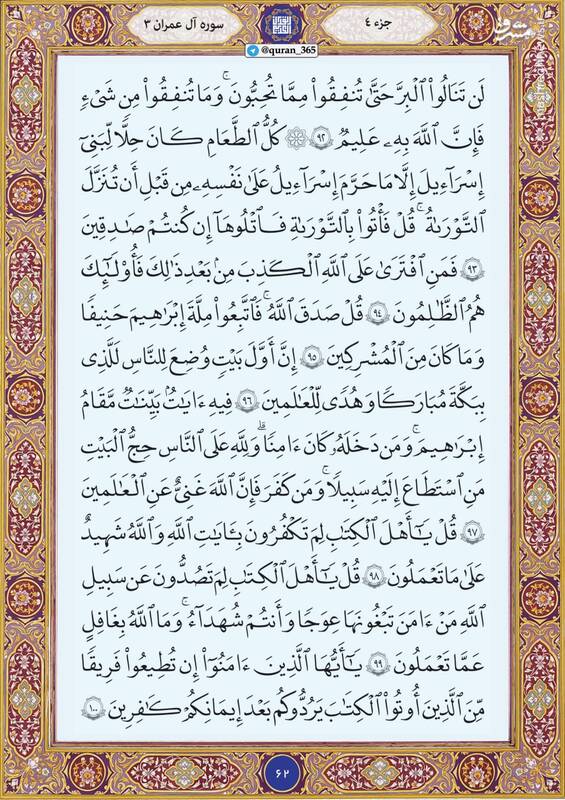 جزء ٤
سوره آل عمران ٣
@quran_365
لَن تَنَالُوا۟ ٱلْبِرَّ حَتَّىٰ تُنفِقُوا۟ مِمَّا تُحِبُّونَ ۚ وَمَا تُنفِقُوا۟ مِن شَىْءٍ
فَإِنَّ ٱللَّهَ بِهِۦ عَلِيمٌ ٩٢ ۞ كُلُّ ٱلطَّعَامِ كَانَ حِلًّا لِّبَنِىٓ
إِسْرَٰٓءِيلَ إِلَّا مَا حَرَّمَ إِسْرَٰٓءِيلُ عَلَىٰ نَفْسِهِۦ مِن قَبْلِ أَن تُنَزَّلَ
ٱلتَّوْرَىٰةُ ۗ قُلْ فَأْتُوا۟ بِٱلتَّوْرَىٰةِ فَٱتْلُوهَآ إِن كُنتُمْ صَٰدِقِينَ
٩٣ فَمَنِ ٱفْتَرَىٰ عَلَى ٱللَّهِ ٱلْكَذِبَ مِنۢ بَعْدِ ذَٰلِكَ فَأُو۟لَٰٓئِكَ
هُمُ ٱلظَّٰلِمُونَ ٩٤ قُلْ صَدَقَ ٱللَّهُ ۗ فَٱتَّبِعُوا۟ مِلَّةَ إِبْرَٰهِيمَ حَنِيفًا
وَمَا كَانَ مِنَ ٱلْمُشْرِكِينَ ٩٥ إِنَّ أَوَّلَ بَيْتٍ وُضِعَ لِلنَّاسِ لَلَّذِى
بِبَكَّةَ مُبَارَكًا وَهُدًى لِّلْعَٰلَمِينَ ٩٦ فِيهِ ءَايَٰتٌۢ بَيِّنَٰتٌ مَّقَامُ
إِبْرَٰهِيمَ ۖ وَمَن دَخَلَهُۥ كَانَ ءَامِنًا ۗ وَلِلَّهِ عَلَى ٱلنَّاسِ حِجُّ ٱلْبَيْتِ
مَنِ ٱسْتَطَاعَ إِلَيْهِ سَبِيلًا ۚ وَمَن كَفَرَ فَإِنَّ ٱللَّهَ غَنِىٌّ عَنِ ٱلْعَٰلَمِينَ
٩٧ قُلْ يَٰٓأَهْلَ ٱلْكِتَٰبِ لِمَ تَكْفُرُونَ بِـَٔايَٰتِ ٱللَّهِ وَٱللَّهُ شَهِيدٌ
عَلَىٰ مَا تَعْمَلُونَ ٩٨ قُلْ يَٰٓأَهْلَ ٱلْكِتَٰبِ لِمَ تَصُدُّونَ عَن سَبِيلِ
ٱللَّهِ مَنْ ءَامَنَ تَبْغُونَهَا عِوَجًا وَأَنتُمْ شُهَدَآءُ ۗ وَمَا ٱللَّهُ بِغَٰفِلٍ
عَمَّا تَعْمَلُونَ ٩٩ يَٰٓأَيُّهَا ٱلَّذِينَ ءَامَنُوٓا۟ إِن تُطِيعُوا۟ فَرِيقًا
مِّنَ ٱلَّذِينَ أُوتُوا۟ ٱلْكِتَٰبَ يَرُدُّوكُم بَعْدَ إِيمَٰنِكُمْ كَٰفِرِينَ ١٠٠
٦٢